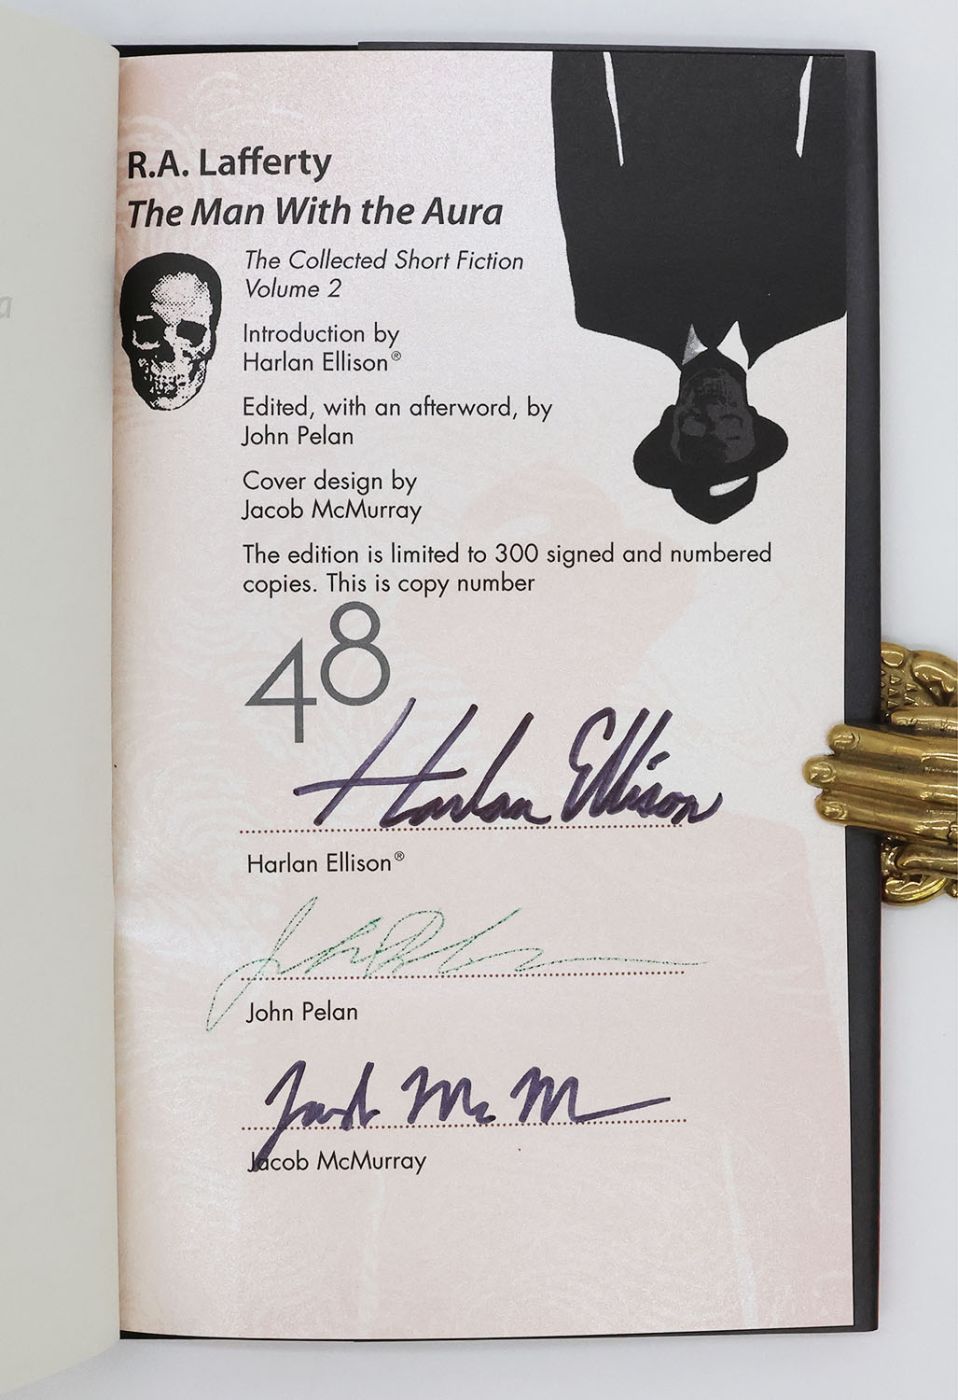 R.A. Lafferty
The Man With the Aura
The Collected Short Fiction
Volume 2
Introduction by
Harlan Ellison®
Edited, with an afterword, by
John Pelan
Cover design by
Jacob McMurray
The edition is limited to 300 signed and numbered
copies. This is copy number
48
Harlan Ellison
Harlan Ellison®
John Pelan
Jacob McMurray